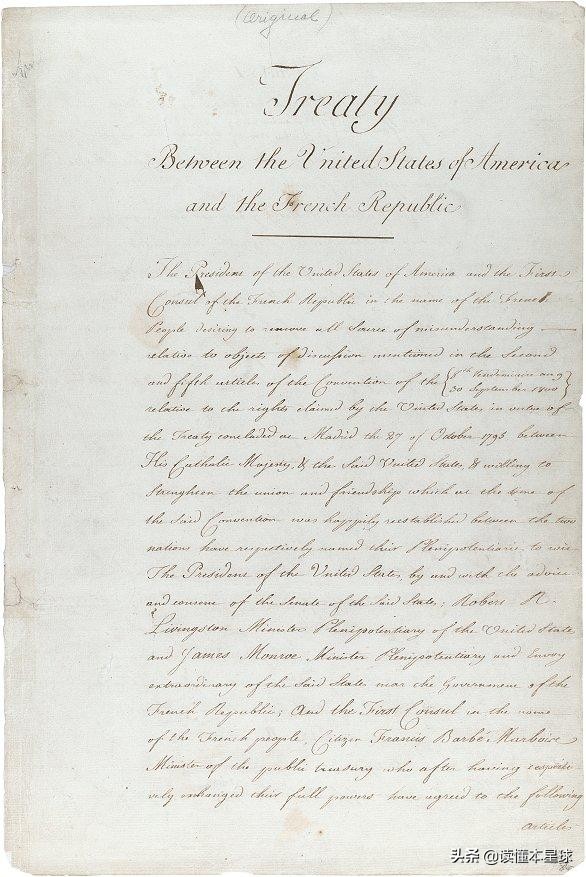 (Original)
Treaty
Between the United States of America
and the French Republic
The President of the United States of America and the First
Consul of the French Republic in the name of the French
People desiring to remove all Source of misunderstanding
relative to objects of discussion mentioned in the Second
and fifth articles of the Convention of the {8th Vendémiaire an 9
30 September 1800}
relative to the rights claimed by the United States in virtue of
the Treaty concluded at Madrid the 27 of October 1795 between
His Catholic Majesty, & the Said United States, & willing to
Strengthen the union and friendship which at the time of
the Said Convention was happily reestablished between the two
nations have respectively named their Plenipotentiaries to wit
The President of the United States, by and with the advice
and consent of the Senate of the Said States; Robert R.
Livingston Minister Plenipotentiary of the United States
and James Monroe Minister Plenipotentiary and Envoy
extraordinary of the Said States near the Government of the
French Republic; And the First Consul in the name
of the French people, Citizen Francis Barbé Marbois
Minister of the public treasury who after having respecti-
vely exchanged their full powers have agreed to the following
articles
头条 @读懂本星球